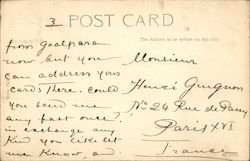 3
POST CARD
The Address to be written on this side.
from Goalpara
now but you
can address your
cards there. Could
you send me
any past ones?
in exchange any
kind you like let
me know, and
Monsieur
Henri Guignon
No 24 Rue de Passy
Paris XVI
France